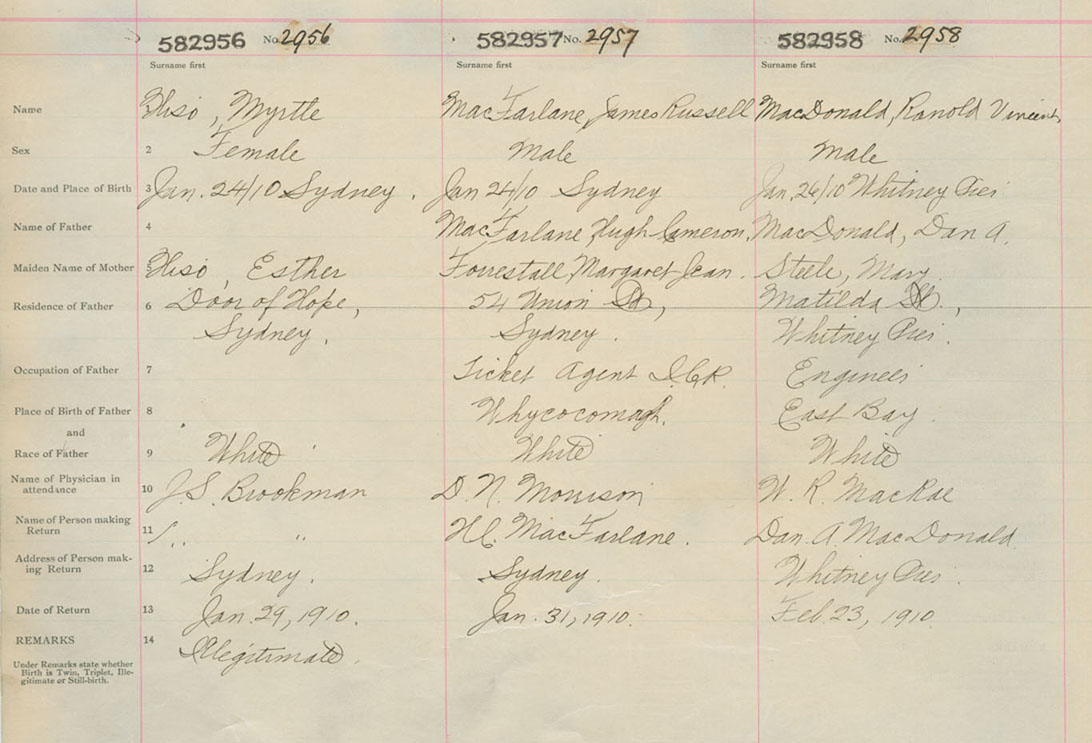 582956 No. 2956 582957 No. 2957 582958 No. 2958
Surname first Surname first Surname first
Name , Myrtle MacFarlane, James Russell MacDonald, Ranold Vincent
Sex 2 Female Male Male
Date and Place of Birth 3 Jan. 24/10 Sydney. Jan 24/10 Sydney Jan. 26/10 Whitney Pier
Name of Father 4 MacFarlane, Hugh Cameron. MacDonald, Dan A.
Maiden Name of Mother 5 , Esther Forrestall, Margaret Jean. Steele, Mary
Residence of Father 6 Door of Hope, 54 Union St, Matilda St.,
Sydney. Sydney. Whitney Pier.
Occupation of Father 7 Ticket Agent I.C.R. Engineer
Place of Birth of Father 8 Whycocomagh. East Bay.
and
Race of Father 9 White White White
Name of Physician in
attendance 10 J.S. Brookman D. N. Morrison W. R. MacRae
Name of Person making
Return 11 " " H.C. MacFarlane. Dan. A. MacDonald.
Address of Person mak-
ing Return 12 Sydney. Sydney. Whitney Pier.
Date of Return 13 Jan. 29, 1910. Jan. 31, 1910. Feb. 23, 1910.
REMARKS 14 Illegitimate.
Under Remarks state whether
Birth is Twin, Triplet, Ille-
gitimate or Still-birth.